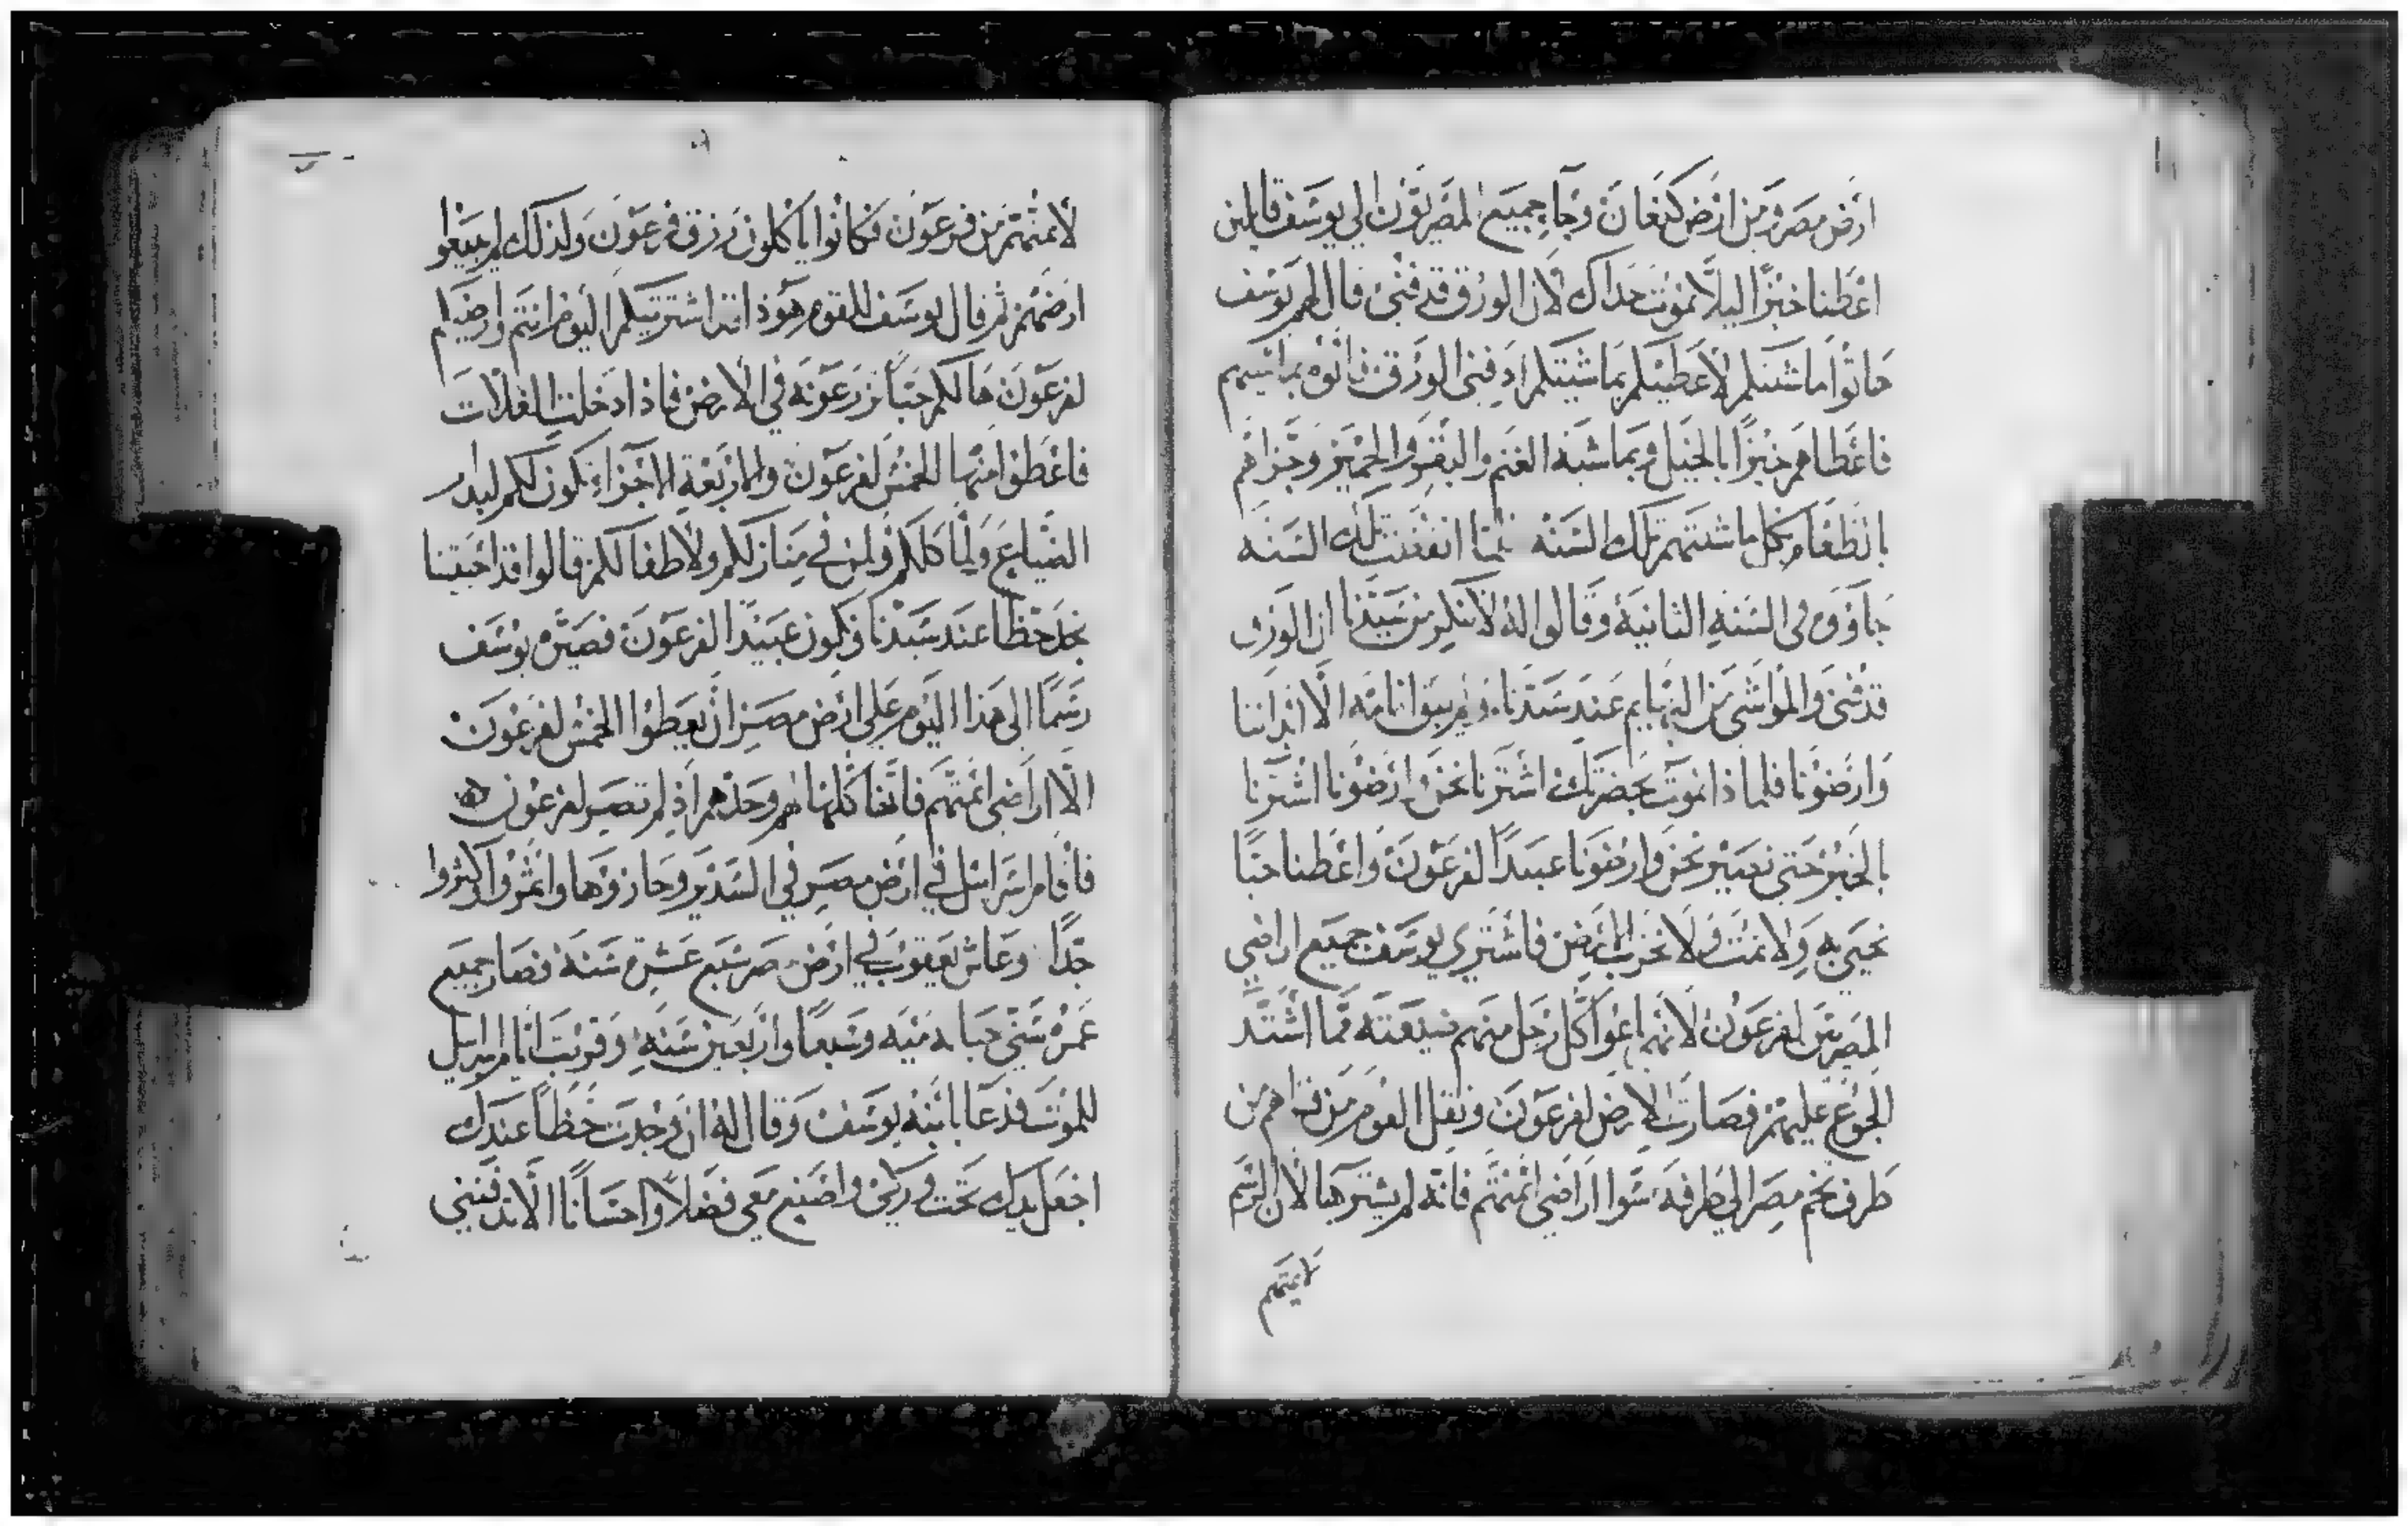 ارض مصر ومن ارض كنعان وجآ جميع المصريون الي يوسف قايلين
اعطنا خبزًا ليلًا نموت حداك لان الورق قد فني قال لهم يوسف
هاتوا ماشيتكم لاعطيكم بماشيتكم اذ فني الورق فاتوه بماشيتهم
فاعطاهم خبزًا بالخيل وبماشية الغنم والبقر والحمير وجزاهم
بالطعام بكل ماشيتهم تلك السنه فلما انقضت تلك السنه
جاؤوه في السنه الثانيه وقالوا له لا نكلم من سيدنا ان الورق
قد فني والمواشي من البهايم عند سيدنا ولم يبق لنا منه الا ابداننا
وارضونا فلماذا نموت بحضرتك اشترنا نحن وارضونا اشترنا
بالخبز حتى نصير نحن وارضونا عبيدًا لفرعون واعطنا حبًا
نحيى به ولا نمت ولا تخرب الارض فاشترى يوسف جميع اراضي
المصريين لفرعون لانهم باعوا كل رجل منهم ضيعته مما اشتد
الجوع عليهم فصارت الارض لفرعون ونقل القوم من قراهم من
طرف تخم مصر الي طرفه سوا اراضي ائمتهم فانه لم يشترها لان الرسم
لائمتهم
لائمتهم من فرعون فكانوا ياكلون رزق فرعون ولذلك لم يبيعوا
ارضهم ثم قال يوسف للقوم هوذا قد اشتريتكم اليوم انتم وارضيكم
لفرعون ها لكم حبًا تزرعونه في الارض فاذا دخلت الغلات
فاعطوا منها الخمس لفرعون والاربعة الاجزاء تكون لكم لبدر
الضياع ولماكلكم ولمن في منازلكم ولاطفالكم قالوا قد احييتنا
نجد حظا عند سيدنا ونكون عبيدًا لفرعون فصيره يوسف
رسمًا الى هذا اليوم علي ارض مصر ان يعطوا الخمس لفرعون
الا اراضي ائمتهم فانها كلها لهم وحدهم اذ لم تصير لفرعون
فاقام اسراييل في ارض مصر في السدير وحازوها واثمروا واكثروا
جدًا وعاش يعقوب في ارض مصر سبع عشره سنة فصار جميع
عمره سني حياته ميه وسبعًا واربعين سنه وقربت ايام اسراييل
للموت فدعا بابنه يوسف وقال له ان وجدت حظًا عندك
اجعل يدك تحت وركي واصنع معي فضلًا واحسانًا الا تدفنني